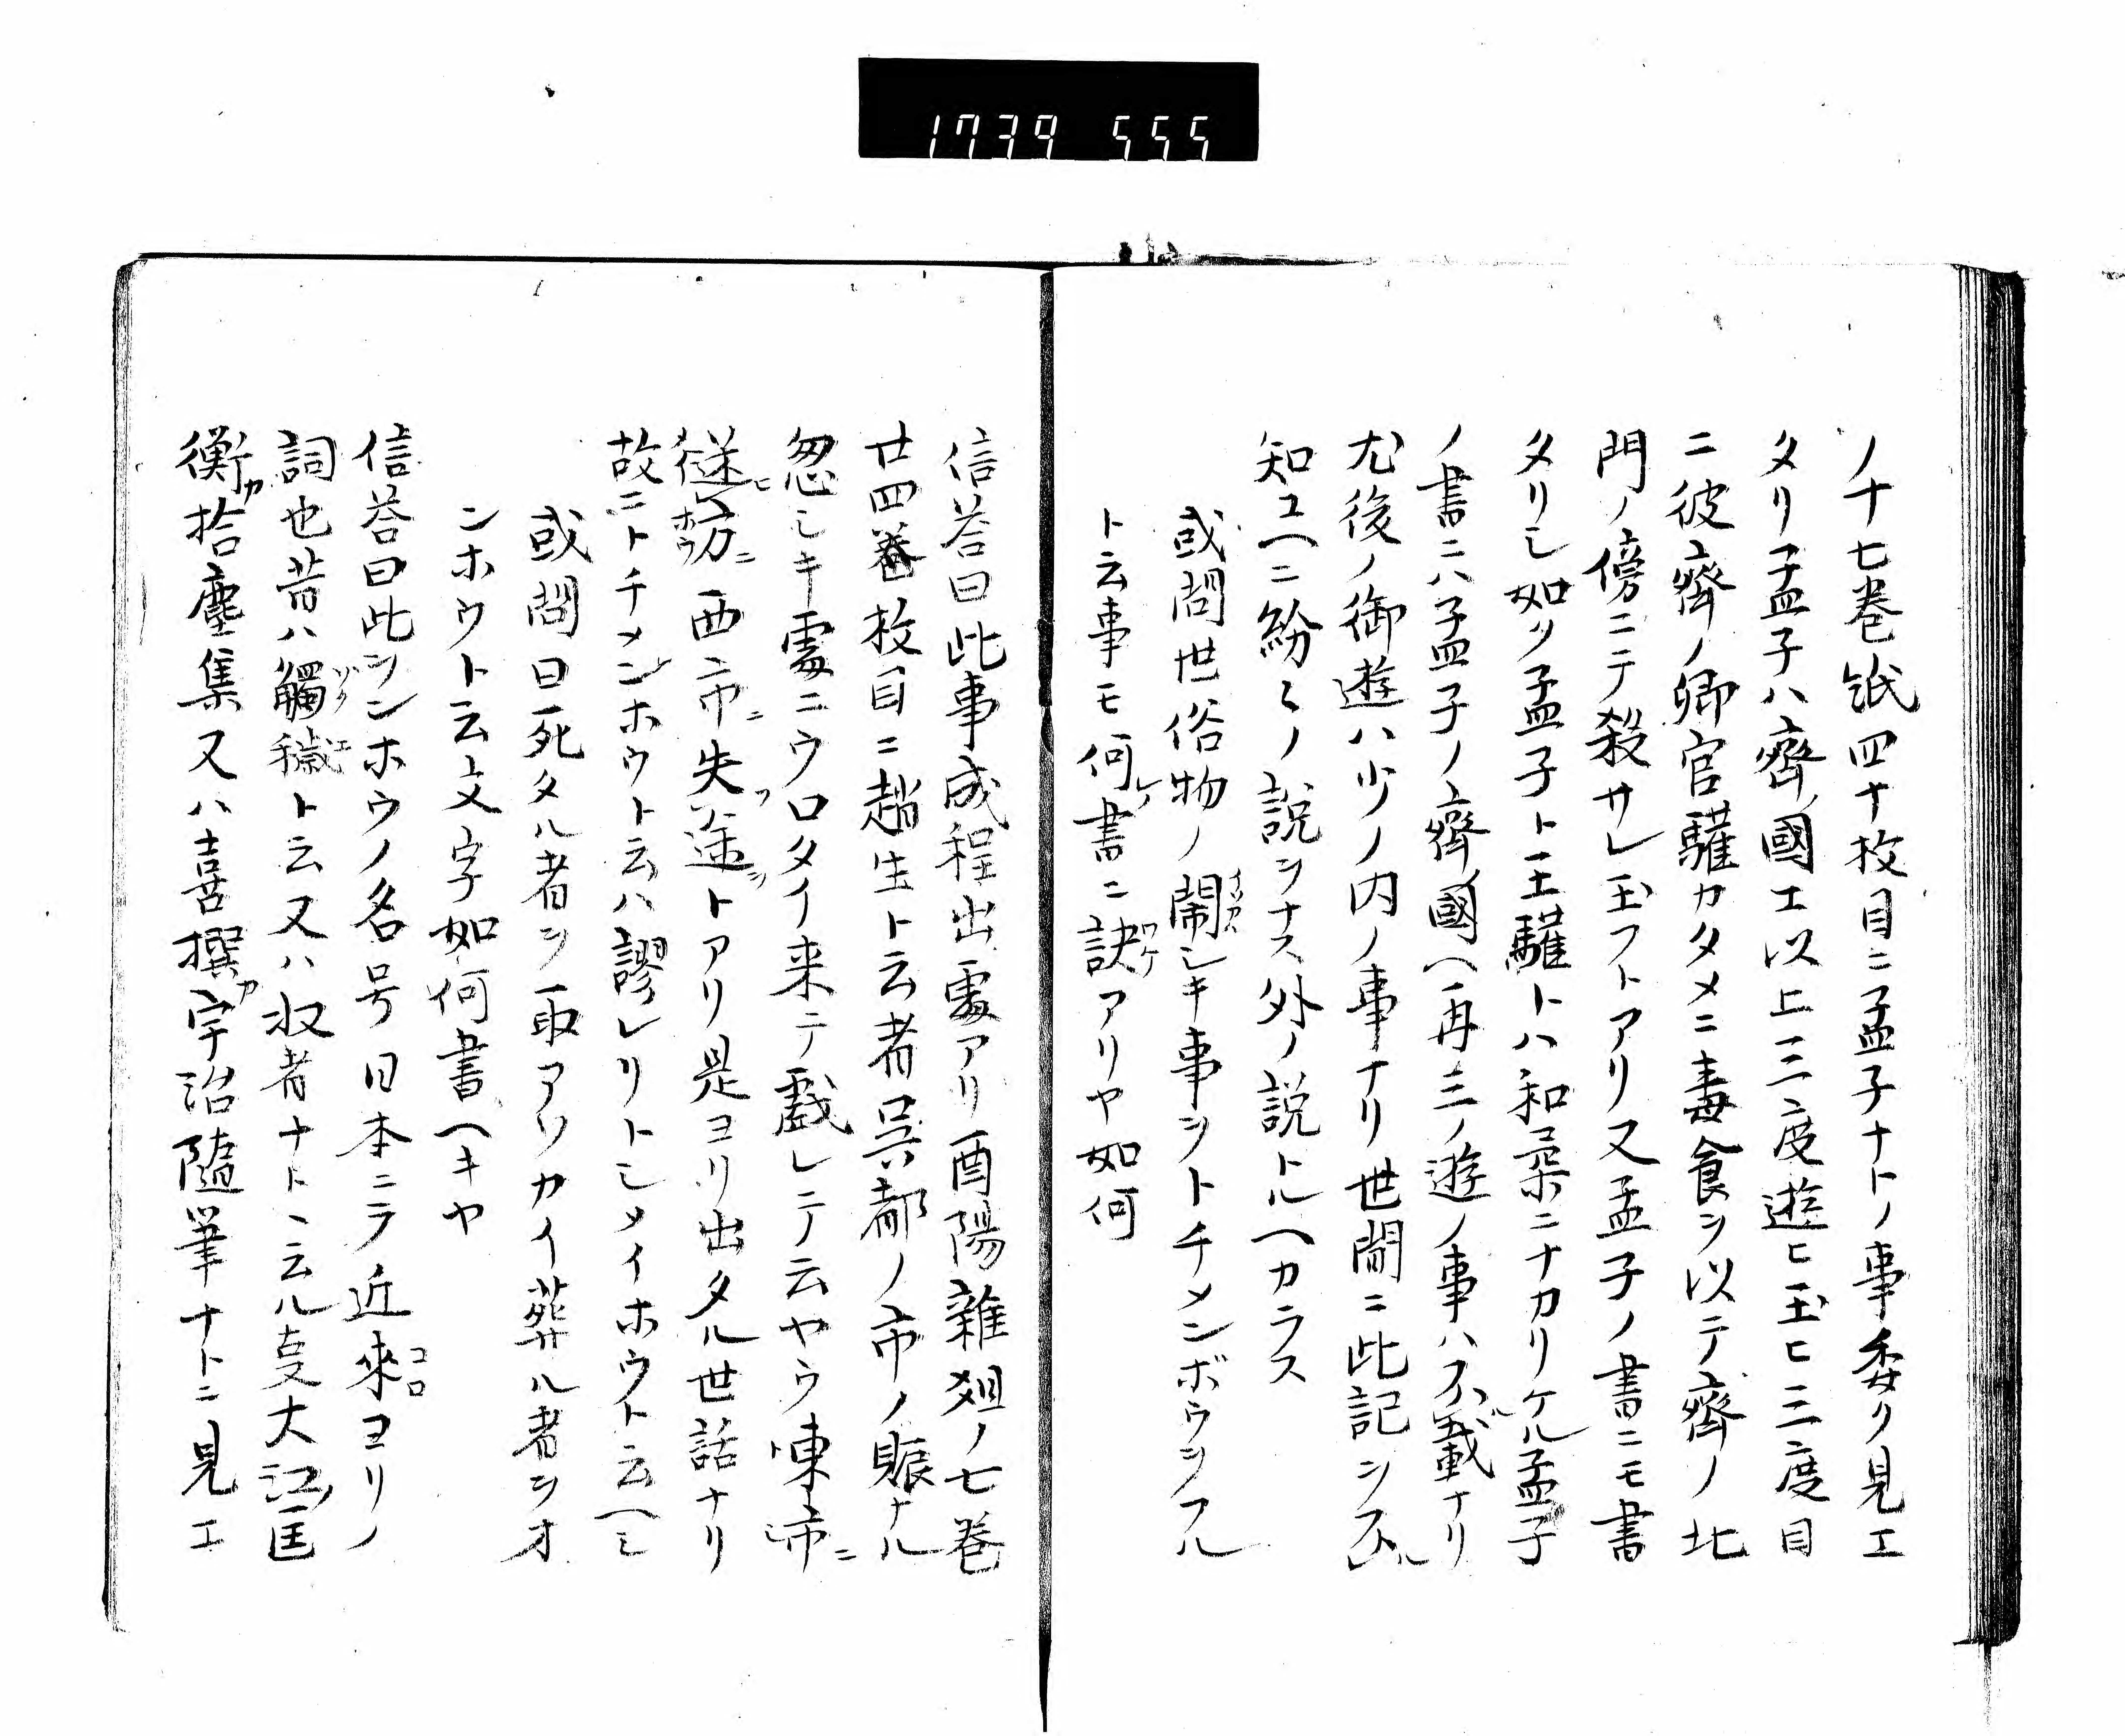 1739 555
ノ十七巻 四十枚目ニ孟子ナトノ事委ク見エ
タリ孟子ハ齊國エ以上三度遊ヒ玉ヒ三度目
ニ彼齊ノ卿官驩カタメニ毒食ヲ以テ齊ノ北
門ノ傍ニテ殺サレ玉フトアリ又孟子ノ書ニモ書
タリシ如ク孟子ト王驩トハ和 ニナカリケル孟子
ノ書ニハ孟子ノ齊國ヘ再三ノ遊ノ事ハ不載ナリ
尤後ノ御遊ハ少ノ内ノ事ナリ世間ニ此記ヲ不ル
知ユヘニ紛々ノ説ヲナス外ノ説トルヘカラス
或問世俗物ノ閙シキ事ヲトチメンボウヲフル
ト云事モ何書ニ訣アリヤ如何
信荅曰此事成程出處アリ酉陽雜爼ノ七巻
廿四番枚目ニ趙生ト云者呉都ノ市ノ賑ナル
怱シキ處ニウロタイ来テ戯レテ云ヤウ東市ニ
 西市ニ失途トアリ是ヨリ出タル世話ナリ
故ニトチメンホウト云ハ謬レリトシメイホウト云ヘシ
或問曰死タル者ヲ取アツカイ葬ル者ヲオ
ンホウト云文字如何書ヘキヤ
信荅曰此ヲンホウノ名号日本ニテ近來ヨリノ
詞也昔ハ觸穢ト云又ハ収者ナトヽ云ル支大江匡
衡カ拾塵集又ハ喜撰カ宇治隨筆ナトニ見エ